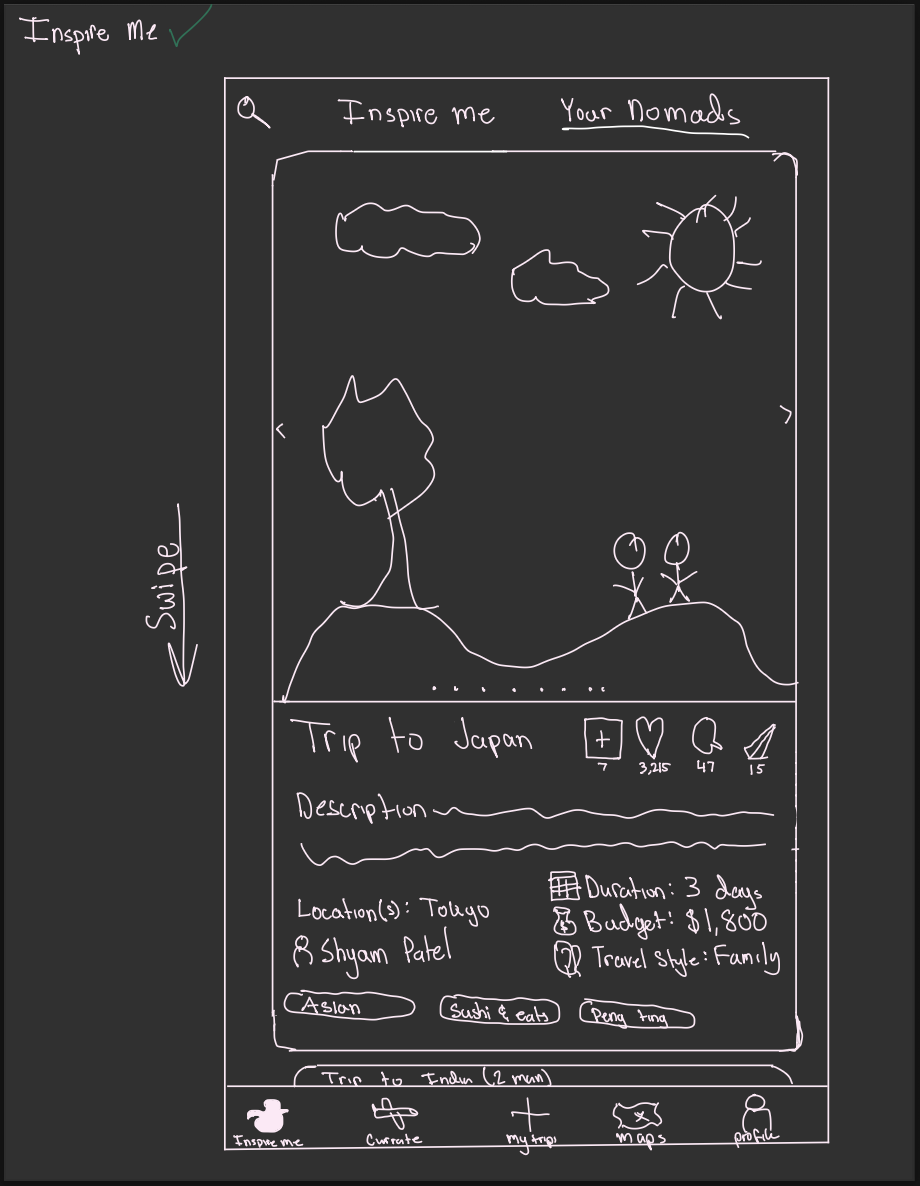 Inspire Me
Inspire me Your Nomads
Swipe
Trip to Japan
7 3,215 47 15
Description
Location(s): Tokyo
Shyam Patel
Duration: 3 days
Budget: $1,800
Travel Style: Family
Asian Sushi & eats Peng ting
Trip to India (2 man)
Inspire me Currate my trips maps profile